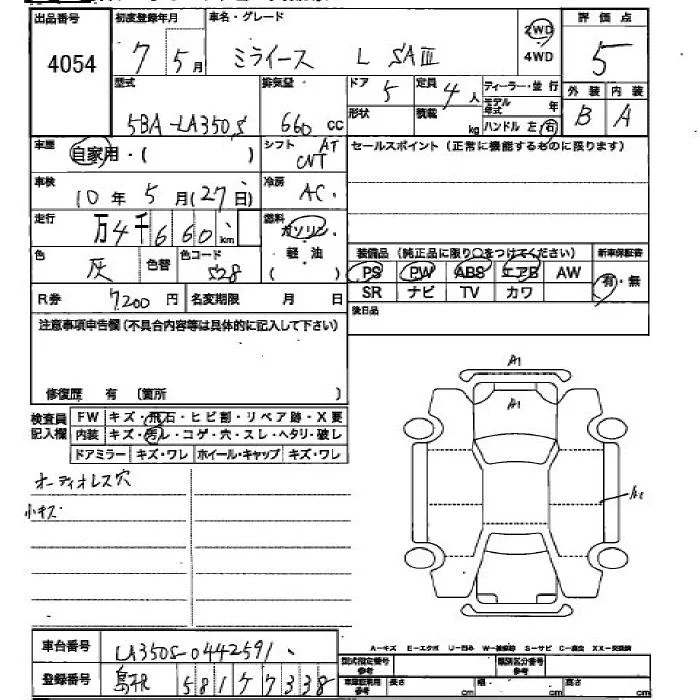 出品番号 初度登録年月 車名・グレード 2WD 4WD 評価点
4054 7年5月 ミライース L SAⅢ 5
型式 排気量 ドア 定員 ディーラー・並行 外装 内装
5BA-LA350S 660cc 5 4人 モデル年式 年 B A
形状 積載 kg ハンドル 左 右
車歴 自家用・( ) シフト AT CVT セールスポイント(正常に機能するものに限ります)
車検 10年5月(27日) 冷房 AC
走行 万4千660km 燃料 ガソリン 軽油 ( )
色 灰 色替 色コード S28
装備品(純正品に限り○をつけてください) 新車保証書
PS PW ABS エアB AW 有・無
SR ナビ TV カワ
R券 7200円 名変期限 月 日 後日品
注意事項申告欄(不具合内容等は具体的に記入して下さい)
修復歴 有 〔箇所 〕
検査員記入欄 FW キズ・飛石・ヒビ割・リペア跡・X要
内装 キズ・汚レ・コゲ・穴・スレ・ヘタリ・破レ
ドアミラー キズ・ワレ ホイール・キャップ キズ・ワレ
オーディオレス穴
小キズ
A1
A1
A2
A-キズ E-エクボ U-凹み W-補修跡 S-サビ C-腐食 XX-交換済
車台番号 LA350S-0442591
登録番号 島根 581 ケ 7338
型式指定番号 参考 類別区分番号 参考
車庫証明用 参考 長さ cm 幅 cm 高さ cm